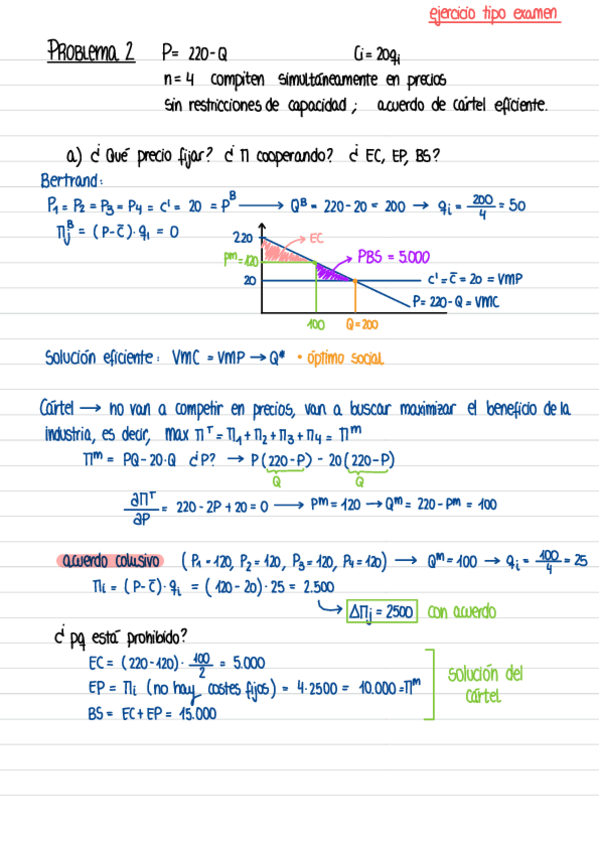 ejercicio tipo examen
PROBLEMA 2 P= 220-Q Ci = 20qi
n = 4 compiten simultáneamente en precios
sin restricciones de capacidad ; acuerdo de cártel eficiente.
a) ¿ Qué precio fijar? ¿ Π cooperando? ¿ EC, EP, BS?
Bertrand:
P1 = P2 = P3 = P4 = c' = 20 = P^B → Q^B = 220-20 = 200 → qi = 200/4 = 50
Πj^B = (P-c̄)·qi = 0
220
EC
P^m=120
PBS = 5.000
20
c' = c̄ = 20 = VMP
P= 220-Q = VMC
100 Q=200
Solución eficiente: VMC = VMP → Q* • óptimo social
Cártel → no van a competir en precios, van a buscar maximizar el beneficio de la
industria, es decir, max Π^T = Π1 + Π2 + Π3 + Π4 = Π^m
Π^m = PQ - 20·Q ¿P? → P(220-P) - 20(220-P)
Q Q
∂Π^T/∂P = 220 - 2P + 20 = 0 → P^m = 120 → Q^m = 220 - P^m = 100
acuerdo colusivo (P1 = 120, P2 = 120, P3 = 120, P4 = 120) → Q^m = 100 → qi = 100/4 = 25
Πi = (P-c̄)·qi = (120-20)·25 = 2.500
ΔΠj = 2500 con acuerdo
¿ pq está prohibido?
EC = (220-120)· 100/2 = 5.000
EP = Πi (no hay costes fijos) = 4·2500 = 10.000 = Π^m
BS = EC + EP = 15.000
solución del
cártel